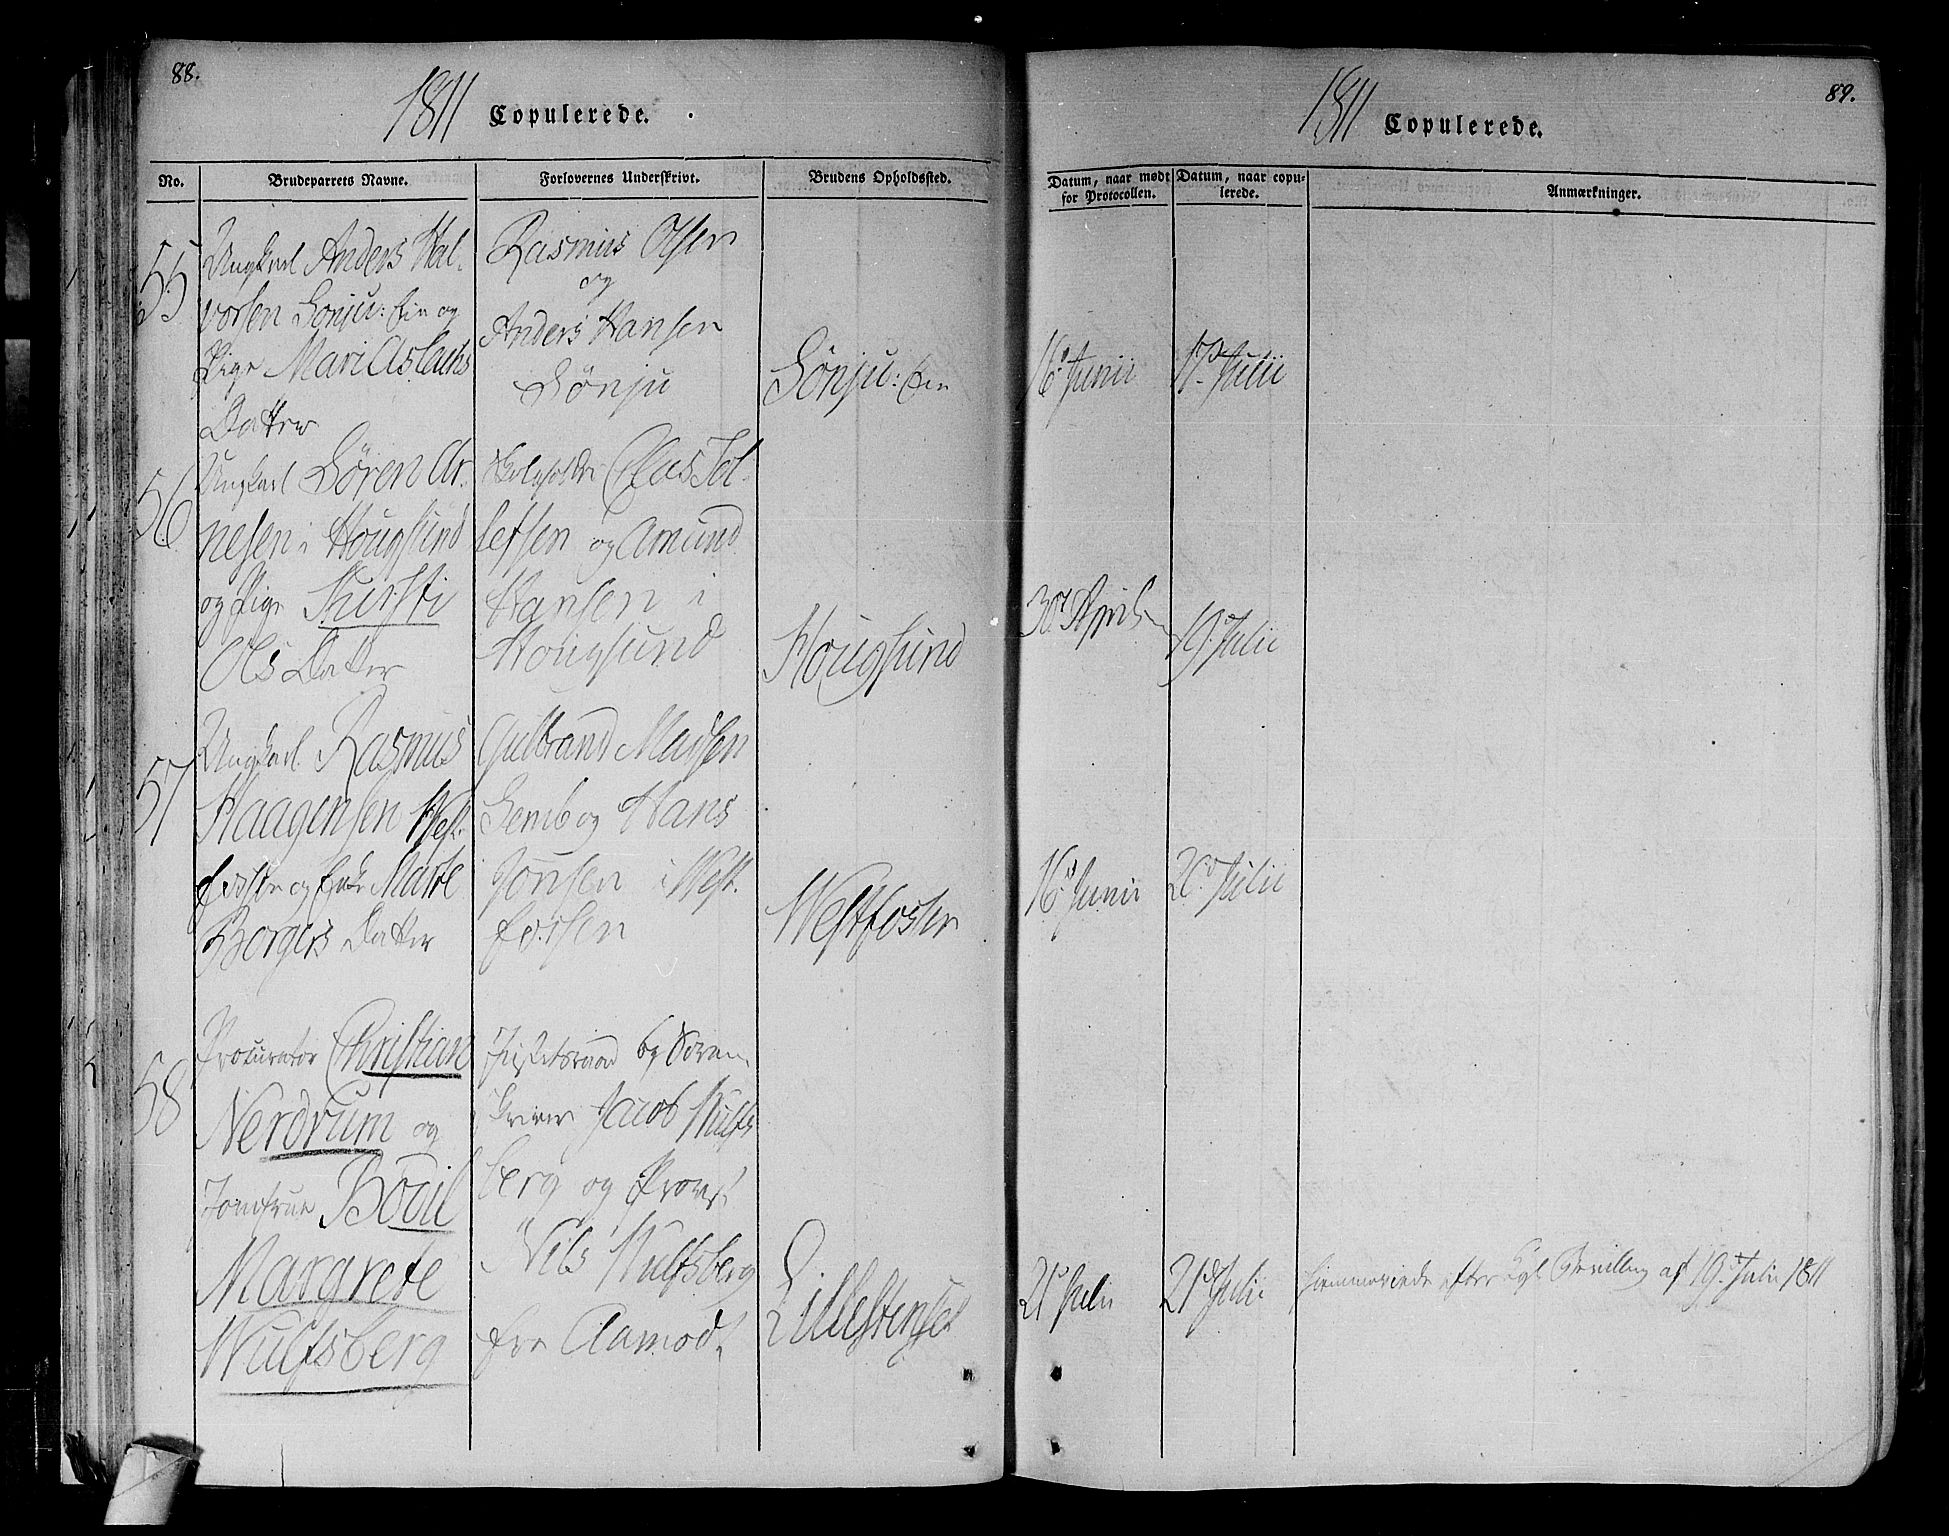 88.
1811 Copulerede.
No.
Brudeparrets Navne.
Forlovernes Underskrivt.
Brudens Opholdssted.
55
Ungkarl Anders Hal-
vorsen Sønju: Eie og
Pige Mari Aslachs
Datter
Rasmus Olsen
og
Anders Hansen
Sønju
Sønju: Eie
56
Ungkarl Sören Ar-
nesen i Hougsund
og Pige Kirsti
Ols Datter
Clas Tol-
lefsen og Amund
Hansen i
Hougsund
Hougsund
57
Ungkarl Rasmus
Haagensen West-
fossen og Enke Marte
Borgers Datter
Gulbrand Madsen
Semb og Hans
Jonsen i West-
fossen
Westfossen
58
Procurator Christian
Nerdrum og
Jomfrue Bodil
Margrete
Wulfsberg
Justitsraad og Soren-
skriver Jacob Wulfs
berg og Provst
Nils Wulfsberg
fra Aamodt
Lillestenset
1811 Copulerede.
89.
Datum, naar mødt
for Protocollen.
Datum, naar copu-
lerede.
Anmærkninger.
16d Junii
17d Julii
30d April
19d Julii
16d Junii
20d Julii
21d Julii
21d Julii
Hiemmeviede efter Kgl. Bevilling af 19d Julii 1811